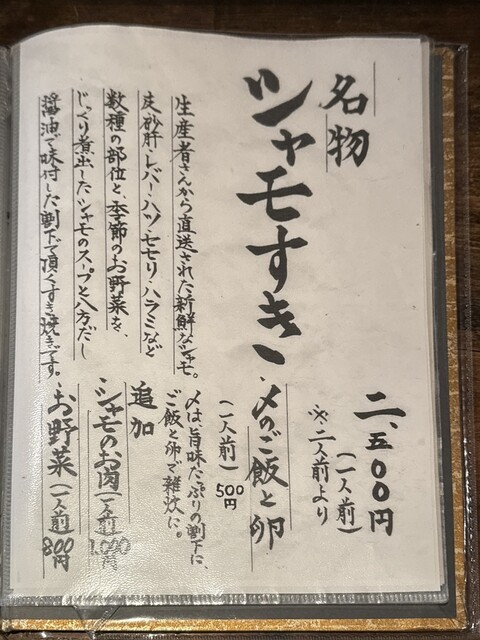 名物
シャモすき
二、五〇〇円
(一人前)
※二人前より
生産者さんから直送された新鮮なシャモ。
皮・砂肝・レバー・ハツ・セセリ・ハラミなど
数種の部位と、季節のお野菜を
じっくり煮出したシャモのスープと八方だし
醤油で味付した割下で頂くすき焼きです。
〆のご飯と卵
(一人前)500円
〆は旨味たっぷりの割下に、
ご飯と卵で雑炊に。
追加
・シャモのお肉(一人前)1,000円
・お野菜(一人前)800円